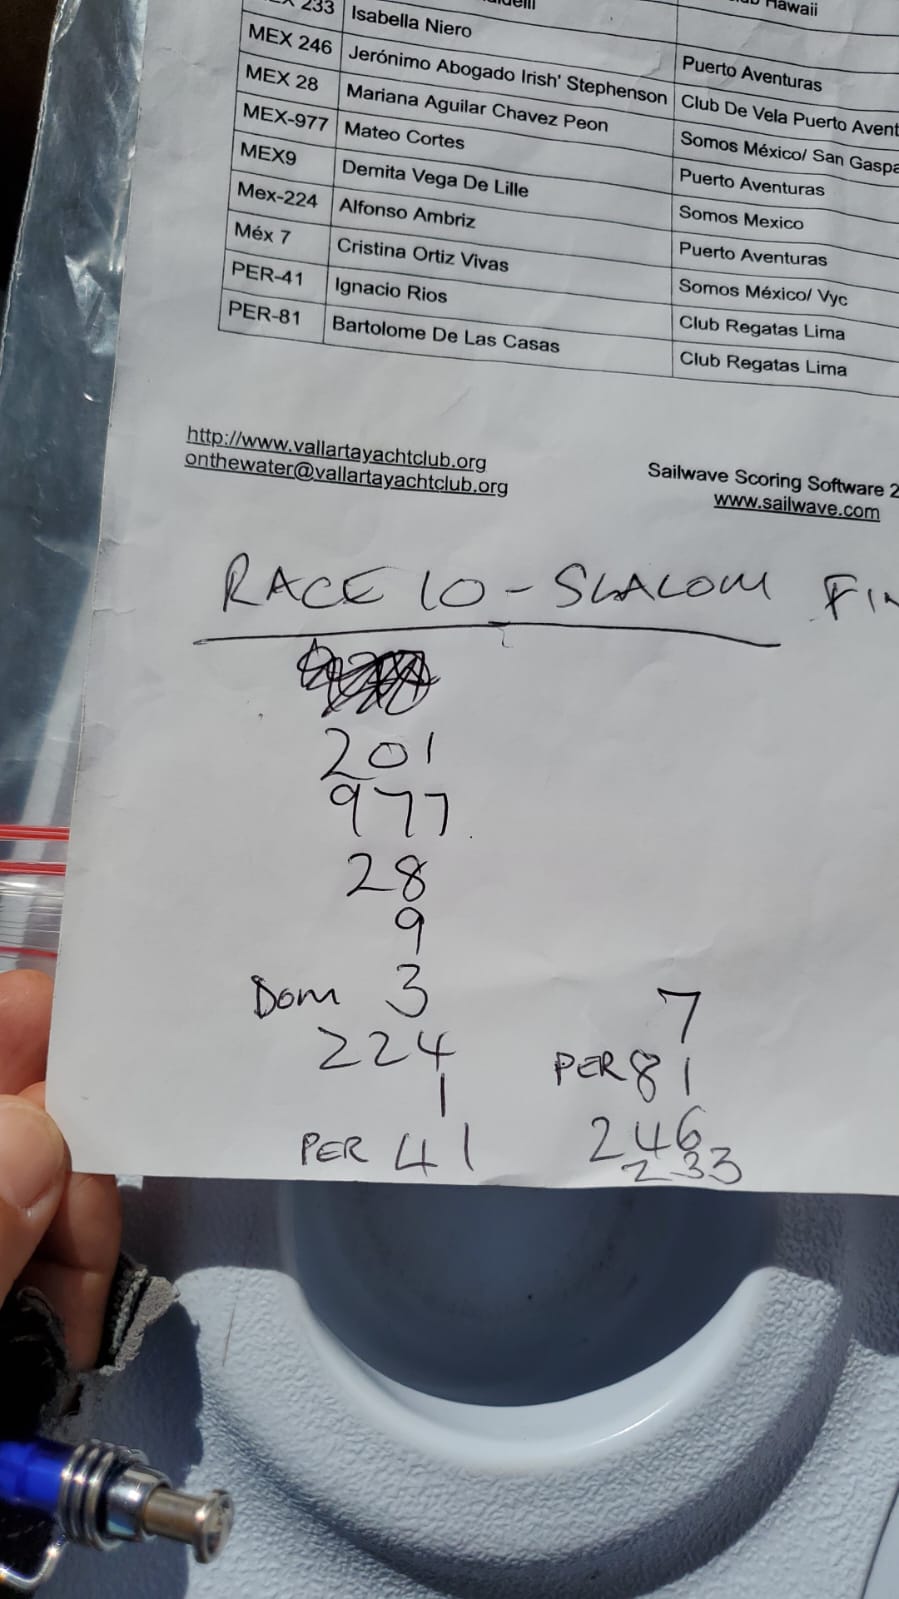 233 Isabella Niero Hawaii
MEX 246 Jerónimo Abogado Irish' Stephenson Puerto Aventuras
MEX 28 Mariana Aguilar Chavez Peon Club De Vela Puerto Avent
MEX-977 Mateo Cortes Somos México/ San Gaspa
MEX9 Demita Vega De Lille Puerto Aventuras
Mex-224 Alfonso Ambriz Somos Mexico
Méx 7 Cristina Ortiz Vivas Puerto Aventuras
PER-41 Ignacio Rios Somos México/ Vyc
PER-81 Bartolome De Las Casas Club Regatas Lima
Club Regatas Lima
http://www.vallartayachtclub.org
onthewater@vallartayachtclub.org
Sailwave Scoring Software 2
www.sailwave.com
RACE 10 - SLALOM FIN
201
977
28
9
Dom 3
224
1
PER 41
7
PER 81
246
233